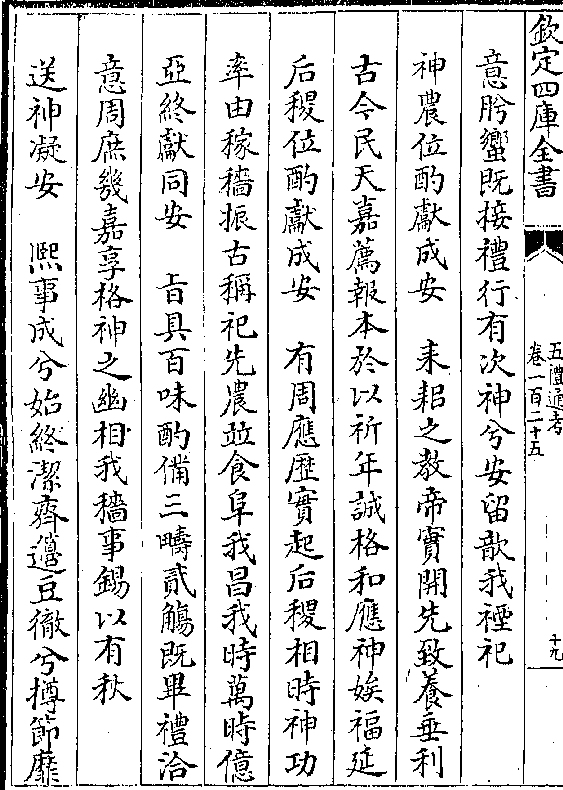 欽定四庫全書
五禮通考
卷一百二十五
十九
意肸蠁既接禮行有次神兮安留歆我禋祀
神農位酌獻成安 耒耜之教帝實開先致養垂利
古今民天嘉薦報本於以祈年誠格和應神娭福延
后稷位酌獻成安 有周應歴實起后稷相時神功
率由稼穡振古稱祀先農竝食阜我昌我時萬時億
亞終獻同安 㫖具百味酌備三疇貳觴既畢禮洽
意周庶幾嘉享格神之幽相我穡事錫以有秋
送神凝安 熈事成兮始終潔齊籩豆徹兮樽節靡